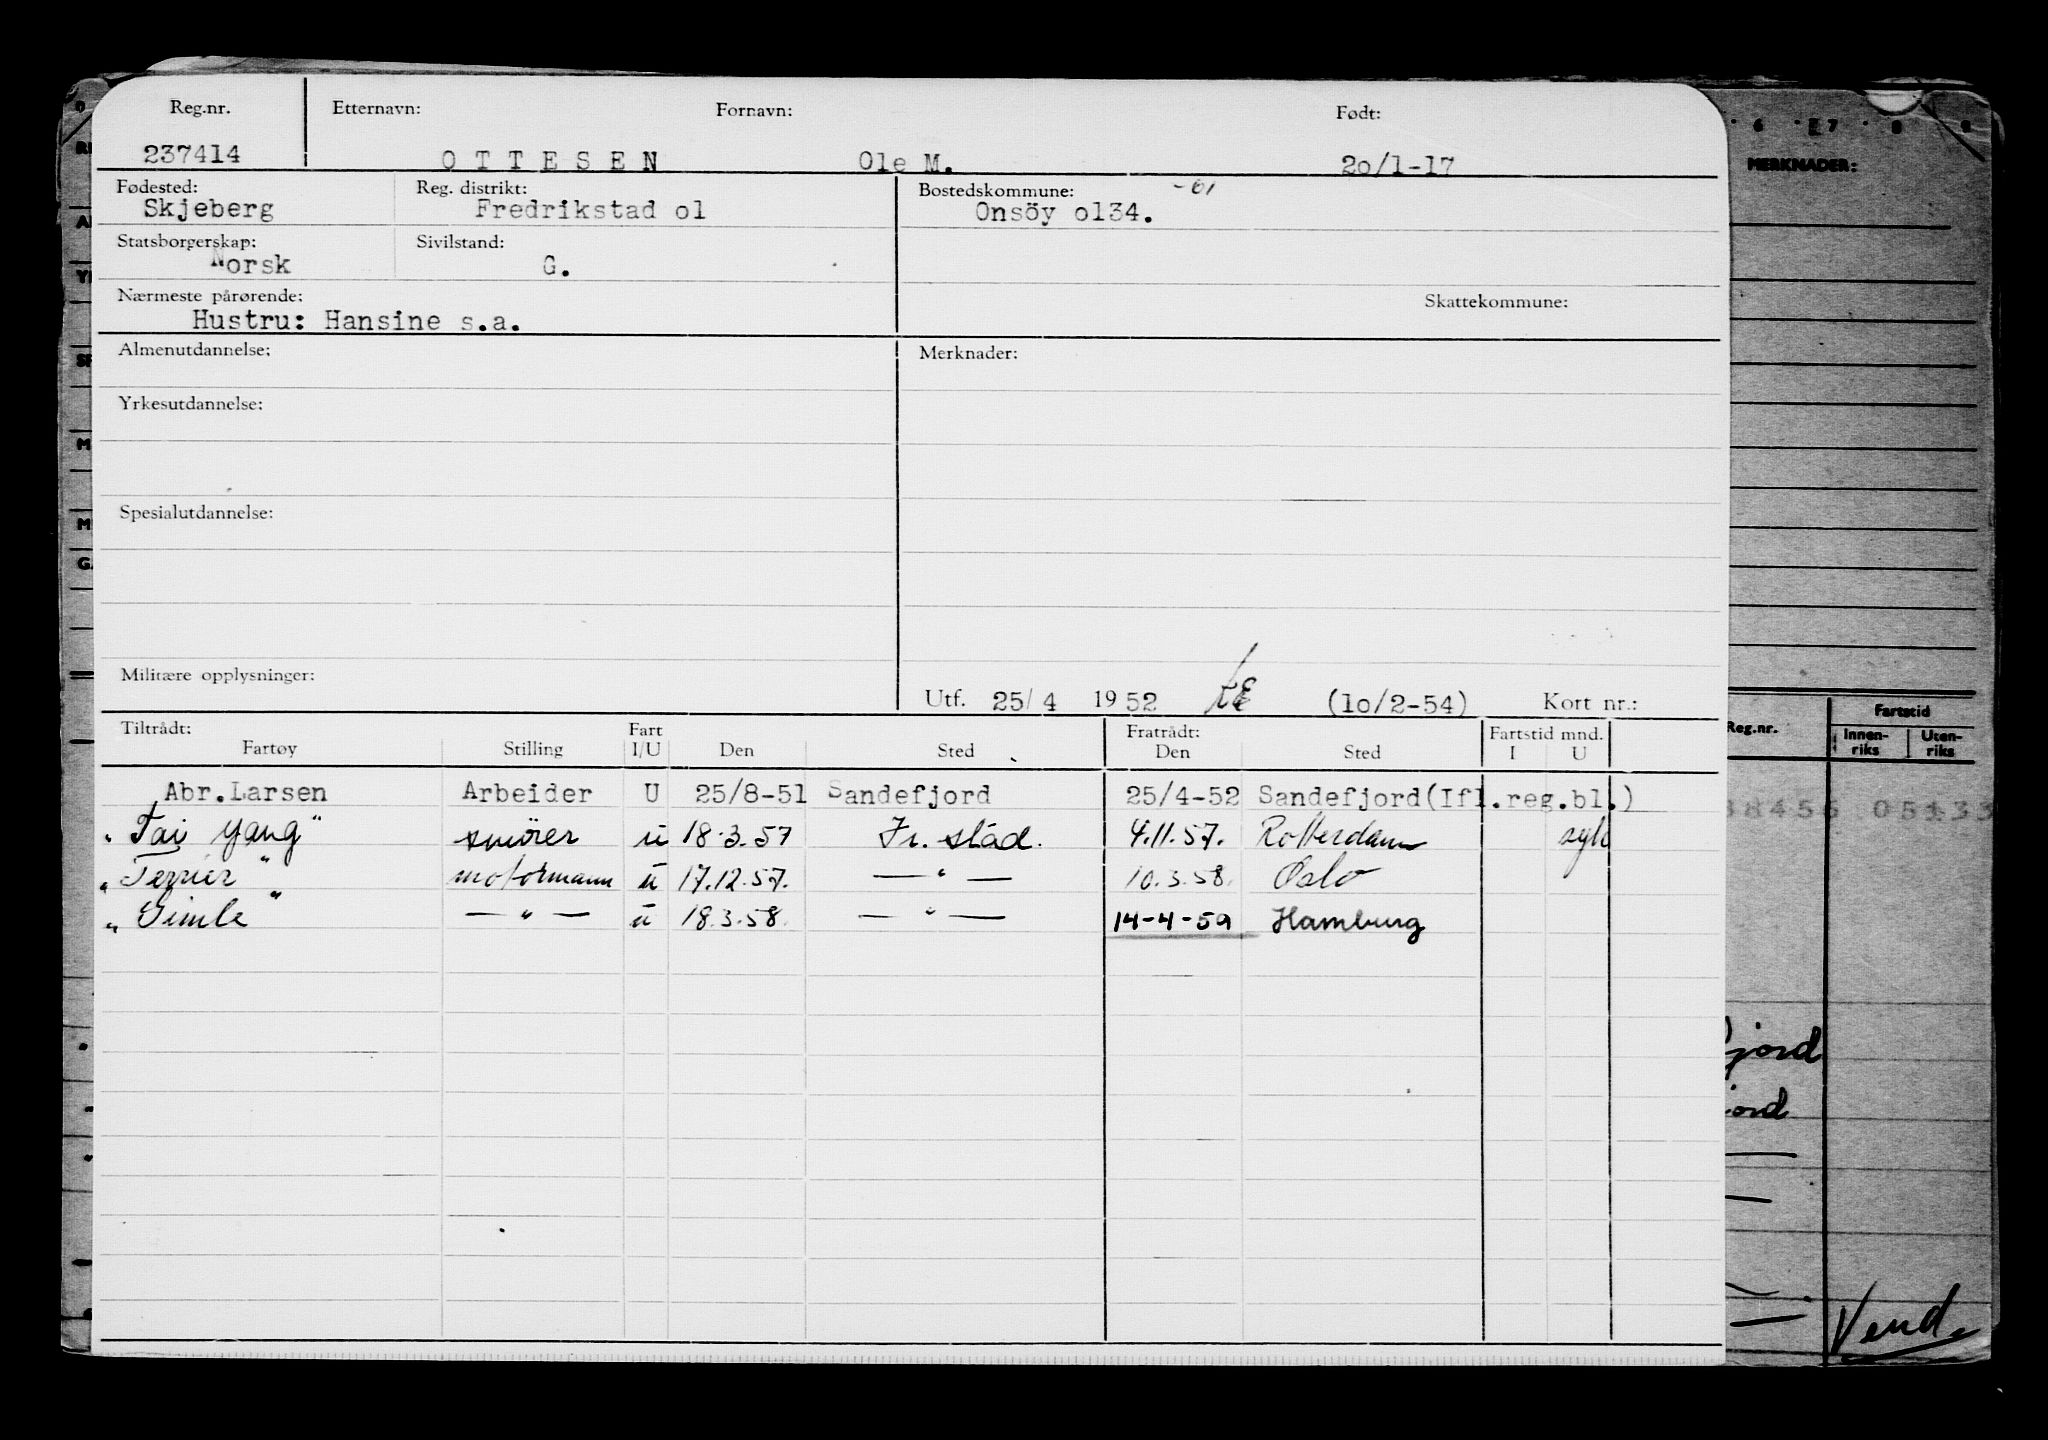 Reg.nr. Etternavn: Fornavn: Født:
237414 O T T E S E N Ole M. 2o/1-17
Fødested: Reg. distrikt: Bostedskommune: -61
Skjeberg Fredrikstad o1 Onsöy o134.
Statsborgerskap: Sivilstand:
Norsk G.
Nærmeste pårørende: Skattekommune:
Hustru: Hansine s.a.
Almenutdannelse: Merknader:
Yrkesutdannelse:
Spesialutdannelse:
Militære opplysninger:
Utf. 25/ 4 1952 (1o/2-54) Kort nr.:
Tiltrådt: Fart Fratrådt: Fartstid mnd.
Fartøy Stilling I/U Den Sted Den Sted I U
Abr.Larsen Arbeider U 25/8-51 Sandefjord 25/4-52 Sandefjord(Ifl.reg.bl.)
"Tai Yang" smörer u 18.3.57 Fr. stad. 4.11.57. Rotterdam syk
"Terrier" motormann u 17.12.57. — " — 10.3.58. Oslo
"Gimle" — " — u 18.3.58. — " — 14-4-59 Hamburg
6 7 8 9
MERKNADER:
Reg.nr. Fartstid
Innen-riks Uten-riks
38456 05133
fjord
jord
Vend.